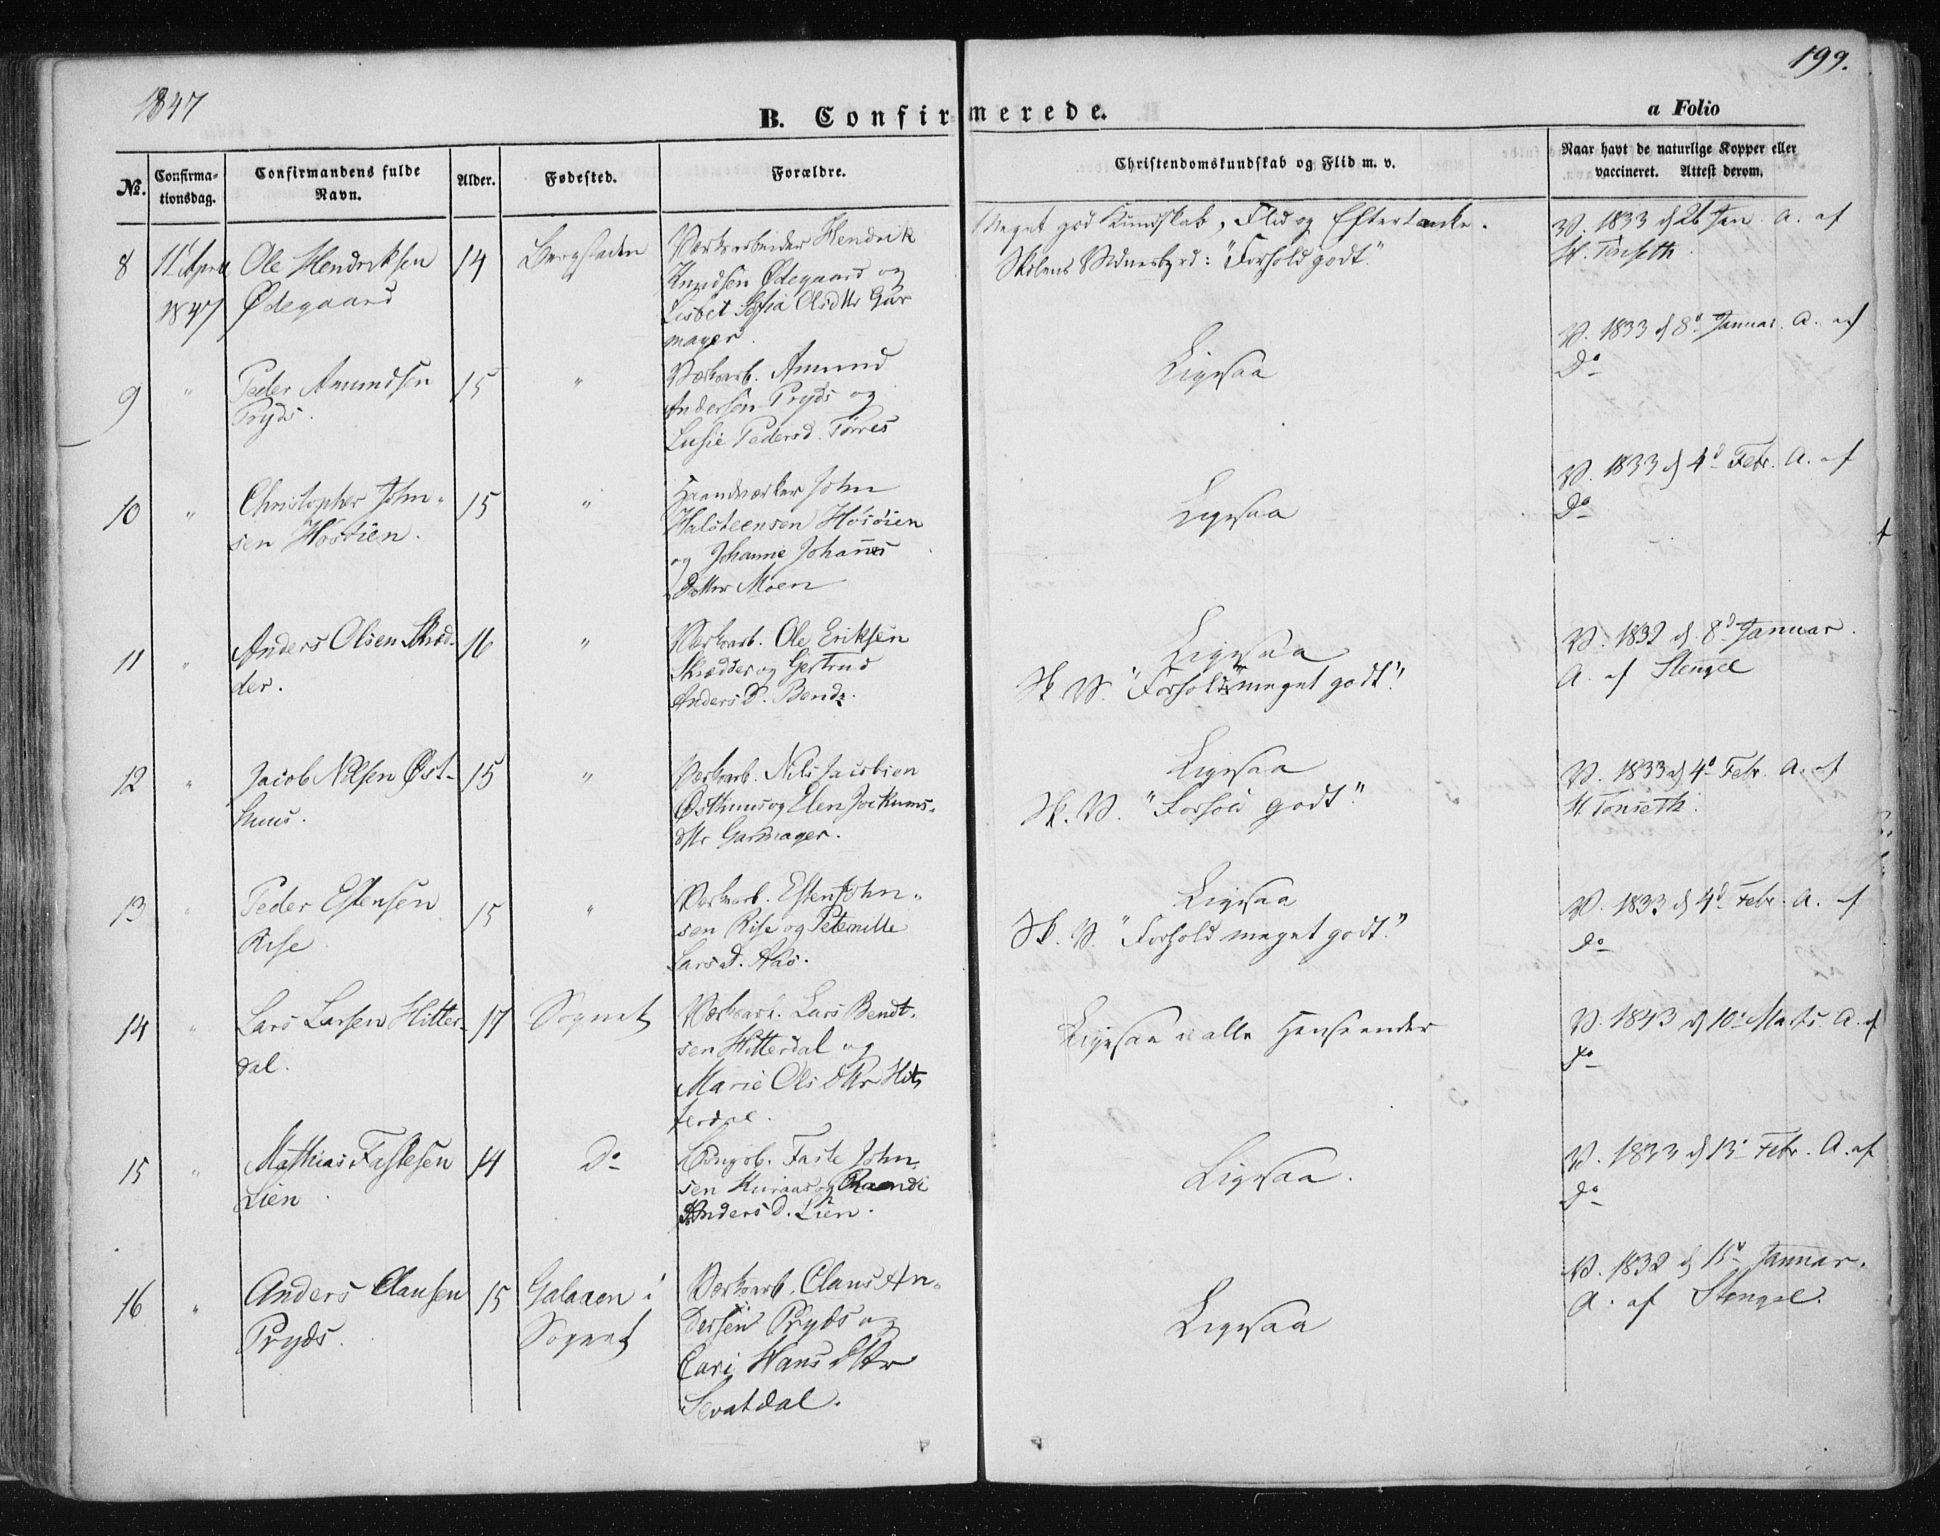 1847
199.
B. Confirmerede.
a Folio
No.
Confirma-
tionsdag.
Confirmandens fulde
Navn.
Alder.
Fødested.
Forældre.
Christendomskundskab og Flid m. v.
Naar havt de naturlige Kopper eller
vaccineret. Attest derom.
8
11 April
1847
Ole Hendriksen
Ødegaard
14
Bergstaden
Værkarbeider Hendrik
Knudsen Ødegaard og
Lisbet Sofia Olsdttr Gar
mager.
Meget god Kundskab, Flid og Eftertanke.
Skolens Vidnesbyrd: "Forhold godt."
V. 1833 d 26 Jan. A. af
H. Tønseth.
9
"
Peder Amundsen
Pryds.
15
"
Værkarb. Amund
Andersen Pryds og
Lusie Pedersd. Tørres
Ligesaa
V. 1833 d 8d Januar. A. af
Do
10
"
Christopher John-
sen Hosøien.
15
"
Haandværker John
Halsteensen Hosøien
og Johanne Johanes
Datter Moen
Ligesaa
V. 1833 d 4d Febr. A. af
Do
11
"
Anders Olsen Skræd-
der.
16
"
Værkarb. Ole Eriksen
Skrædder og Gjertrud
Anders D. Bendz.
Ligesaa
Sk. V. "Forhold meget godt."
V. 1832 d. 8d Januar.
A. af Stengel
12
"
Jacob Nilsen Øst-
huus.
15
"
Værkarb. Nils Jacobsen
Østhuus og Elen Jockums-
dttr Garmager.
Ligesaa
Sk. V. "Forhold godt."
V. 1833 d 4d Febr. A. af
H. Tönseth.
13
"
Peder Estensen
Rise
15
"
Værkarb. Esten John-
sen Rise og Peternille
Lars D. Aas.
Ligesaa
Sk. V. "Forhold meget godt."
V. 1833 d 4d Febr. A. af
do
14
"
Lars Larsen Hitter-
dal.
17
Sognet
Værkarb. Lars Bendt-
sen Hitterdal og
Marie Ols Dttr Hit-
terdal.
Ligesaa i alle Henseender
V. 1843 d 10d Marts. A. af
do
15
"
Mathias Fastesen
Lien.
14
Do
Faste John-
sen Kuraas og Raandi
Anders D. Lien.
Ligesaa.
V. 1833 d 13d Febr. A. af
do
16
"
Anders Clausen
Pryds.
15
Galaaen i
Sognet
Værkarb. Claus An-
dersen Pryds og
Cari Hans Dttr
Sevatdal.
Ligesaa
V. 1832 d 15d Januar.
A. af Stengel.